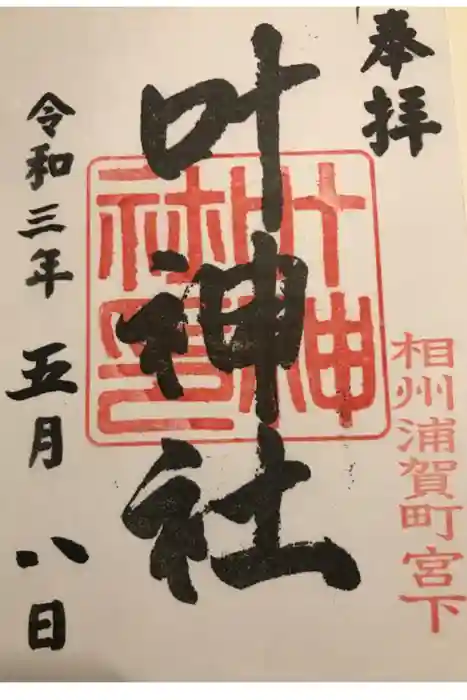 奉拝
相州浦賀町宮下
叶神社
叶神
社印
令和三年五月八日